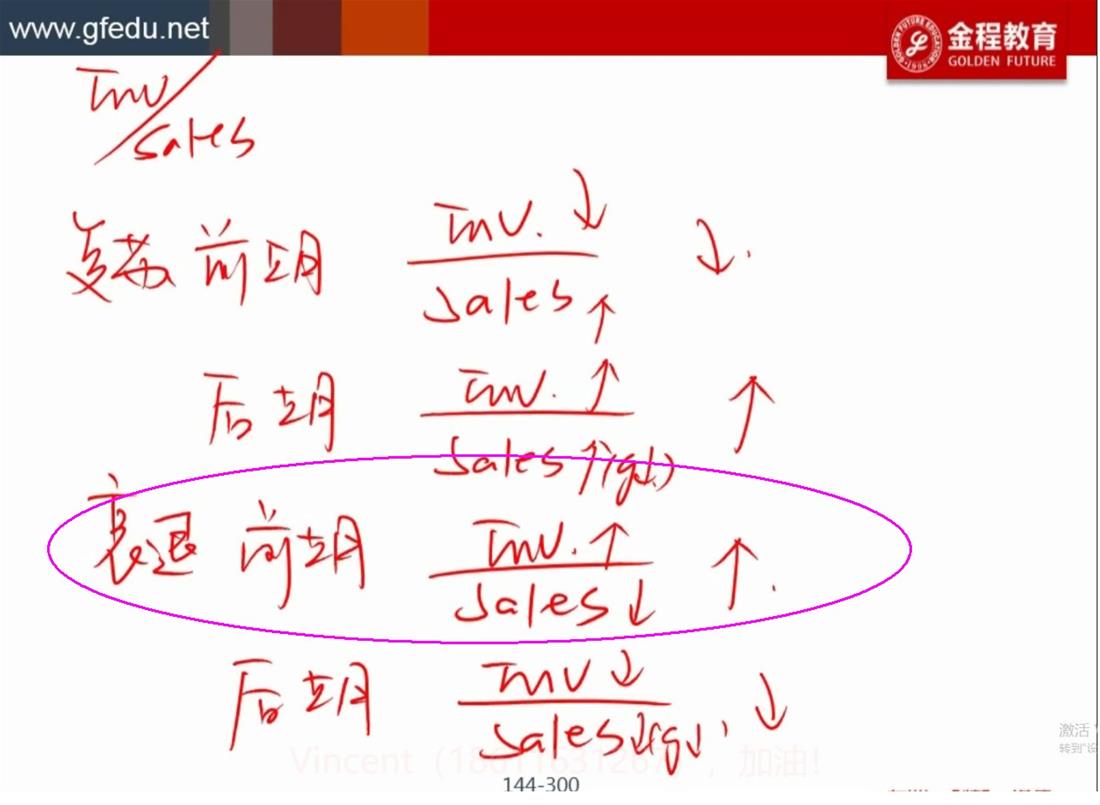 www.gfedu.net
金程教育
GOLDEN FUTURE
Inv/Sales
复苏 前期 Inv.↓/Sales↑ ↓.
后期 Inv.↑/Sales↑(g↓) ↑
衰退 前期 Inv.↑/Sales↓ ↑.
后期 Inv↓/Sales↓(g↓) ↓
激活
转到"设
加油!
144-300